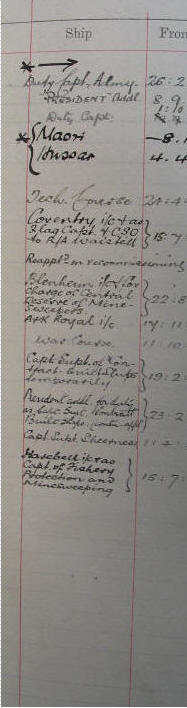 Ship From
Duty Capt. Admy. 26 : 2
"PRESIDENT" Addl 8 . 9
Duty Capt.
Maori — 8 .
Hussar 4 . 4
Tech. Course 24 : 4
Coventry i/c & as
Flag Capt & CSO
to R/A Waistell 15 : 7
Reappt? on recommissioning
Blenheim i/c & for
Charge of Central
Reserve of Mine-
Sweepers. 22 : 8
Ark Royal i/c 14 : 11
War Course 11 : 10
Capt Supt of Con-
tract Built Ships
temporarily 19 : 2
President addl. for duty
as Capt. Supt. Contract
Built Ships 23 : 2
Capt Supt Sheerness 11 : 4
Harebell i/c & as
Capt. of Fishery
Protection and
Minesweeping 15 : 7